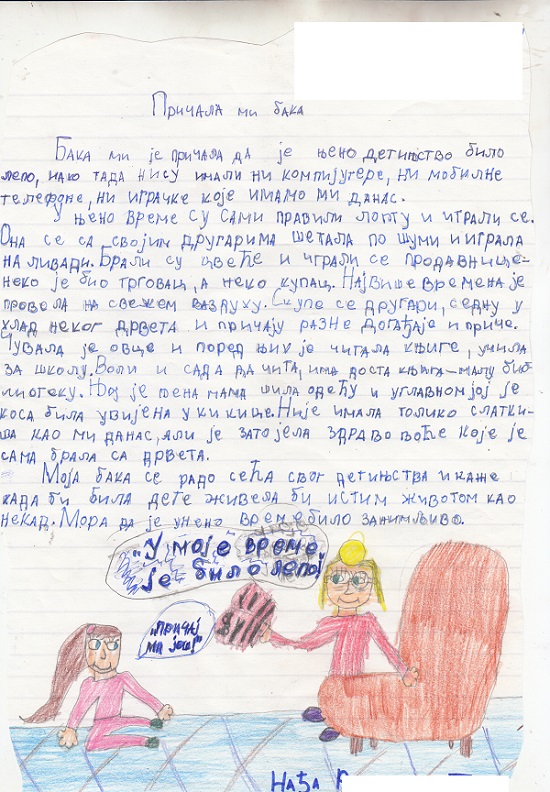 Причала ми бака
Бака ми је причала да је њено детињство било
лепо, иако тада нису имали ни компијутере, ни мобилне
телефоне, ни играчке које имамо ми данас.
У њено време су сами правили лопту и играли се.
Она се са својим другарима шетала по шуми и играла
на ливади. Брали су цвеће и играли се продавнице-
неко је био трговац, а неко купац. Највише времена је
провела на свежем ваздуху. Скупе се другари, седну у
хлад неког дрвета и причају разне догађаје и приче.
Чувала је овце и поред њих је читала књиге, учила
за школу. Воли и сада да чита, има доста књига-малу биб-
лиотеку. Њој је њена мама шила одећу и углавном јој је
коса била увијена у кикице. Није имала толико слатки-
ша као ми данас, али је зато јела здраво воће које је
сама брала са дрвета.
Моја бака се радо сећа свог детињства и каже
када би била дете живела би истим животом као
некад. Мора да је у њено време било занимљиво.
„У моје време
је било лепо!
„Причај
ми још!"
Нађа